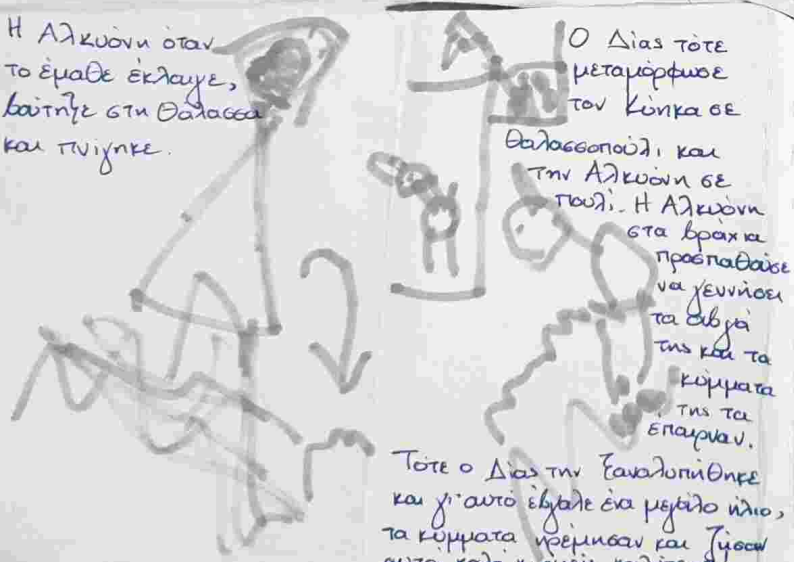 Η Αλκυόνη όταν
το έμαθε έκλαιγε,
βούτηξε στη Θάλασσα
και πνίγηκε.
Ο Δίας τότε
μεταμόρφωσε
τον Κύηκα σε
θαλασσοπούλι και
την Αλκυόνη σε
πουλί. Η Αλκυόνη
στα βράχια
προσπαθούσε
να γεννήσει
τα αβγά
της και τα
κύμματα
της τα
έπαιρναν.
Τότε ο Δίας την ξαναλυπήθηκε
και γι' αυτό έβγαλε ένα μεγάλο ήλιο,
τα κύμματα ηρέμησαν και ζήσαν